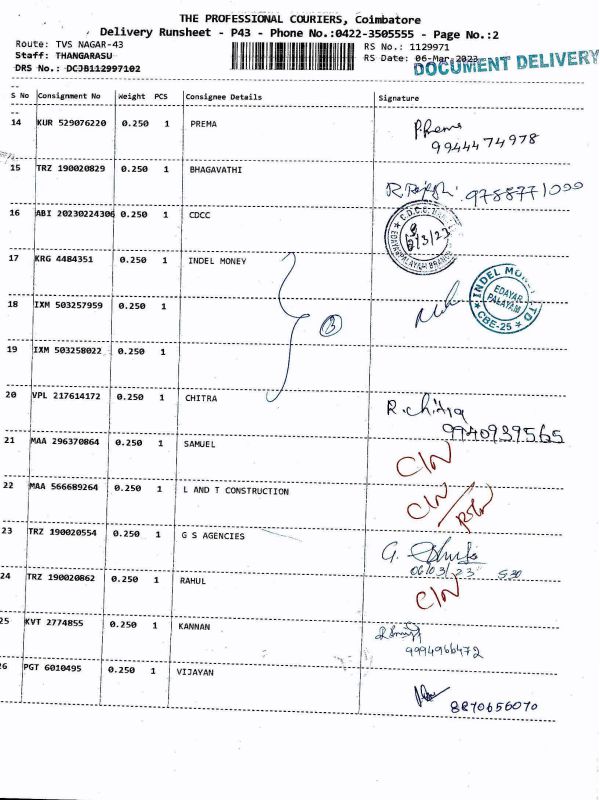 THE PROFESSIONAL COURIERS, Coimbatore
Delivery Runsheet - P43 - Phone No.:0422-3505555 - Page No.:2
Route: TVS NAGAR-43 RS No.: 1129971
Staff: THANGARASU RS Date: 06-Mar-2023
DRS No.: DCJB112997102 DOCUMENT DELIVERY
S No Consignment No Weight PCS Consignee Details Signature
14 KUR 529076220 0.250 1 PREMA P.Rema
9944474978
15 TRZ 190020829 0.250 1 BHAGAVATHI
9788771000
16 ABI 20230224306 0.250 1 CDCC
17 KRG 4484351 0.250 1 INDEL MONEY
INDEL MONEY LTD
EDAYAR PALAYAM
★ CBE-25 ★
18 IXM 503257959 0.250 1
3
19 IXM 503258022 0.250 1
20 VPL 217614172 0.250 1 CHITRA R.chitra
9940939565
21 MAA 296370864 0.250 1 SAMUEL C/N
22 MAA 566689264 0.250 1 L AND T CONSTRUCTION C/N
23 TRZ 190020554 0.250 1 G S AGENCIES G.
06/03/23 530
24 TRZ 190020862 0.250 1 RAHUL C/N
25 KVT 2774855 0.250 1 KANNAN
9994966472
26 PGT 6010495 0.250 1 VIJAYAN
8870656070